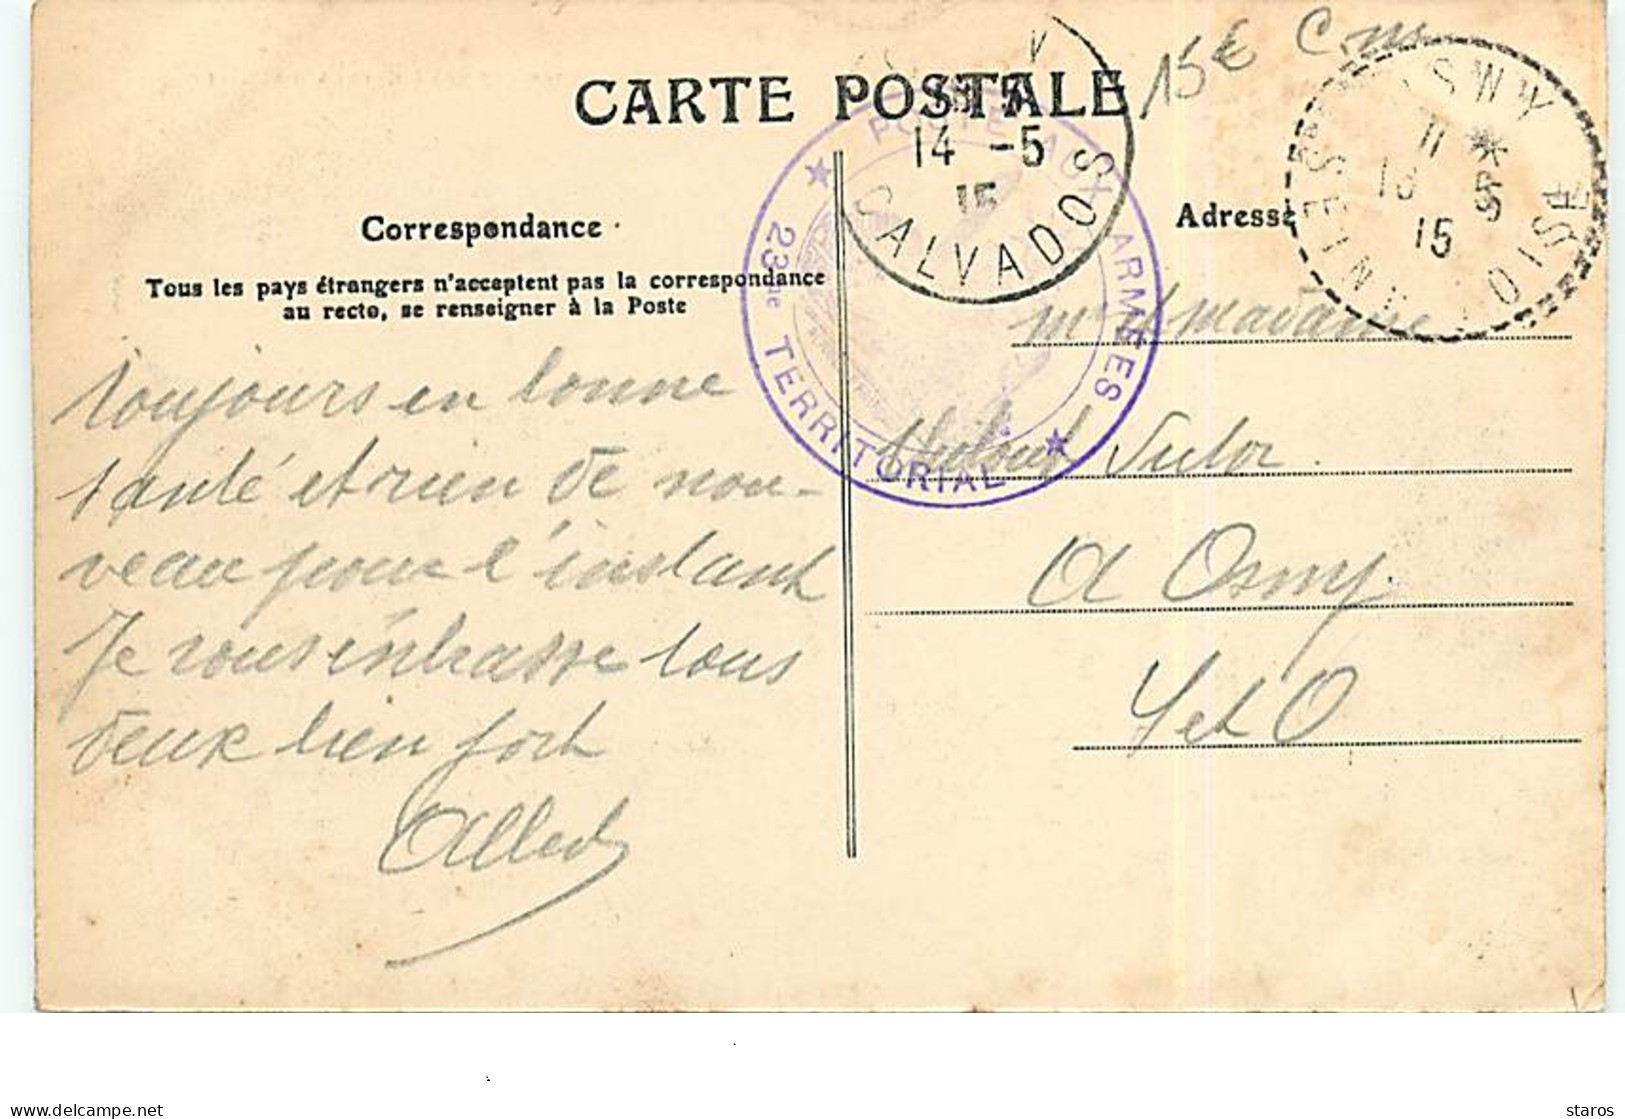 CARTE POSTALE
15€
14 -5
15
CALVADOS
POSTE AUX ARMÉES
23me TERRITORIAL
11 *
15
SEINE ET OISE
Correspondance
Adresse
Tous les pays étrangers n'acceptent pas la correspondance
au recto, se renseigner à la Poste
Mr et madame
Victor
A Osny
S et O
Toujours en bonne
santé et rien de nou-
veau pour l'instant
Je vous embrasse tous
deux bien fort
delcampe.net
staros